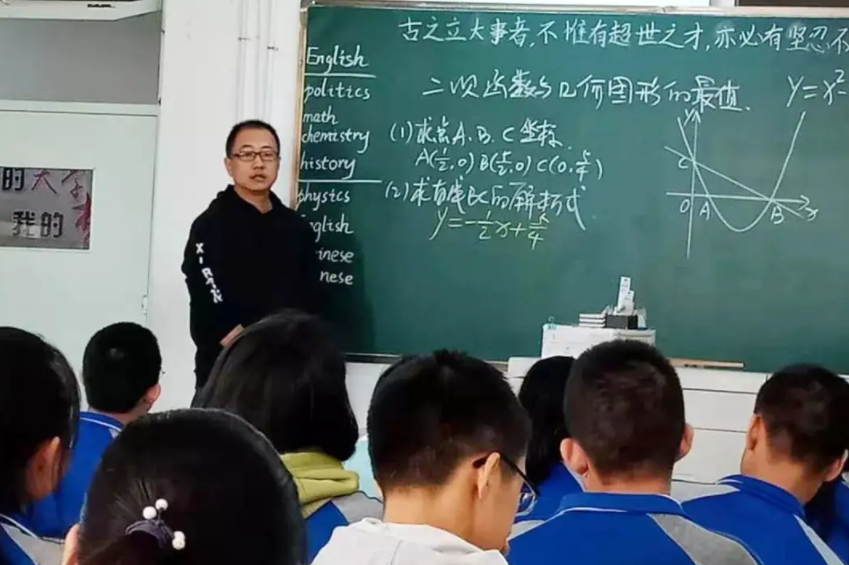 古之立大事者,不惟有超世之才,亦必有坚忍不
English
politics
math
chemistry
history
physics
glish
inese
nese
二次函数与几何图形的最值.
y=x²-
(1)求点A、B、C坐标.
A(½,0) B(5/2,0) C(0,5/4)
(2)求直线BC的解析式
y=-½x+5/4
y
C
O
A
B
x
的大学
我的